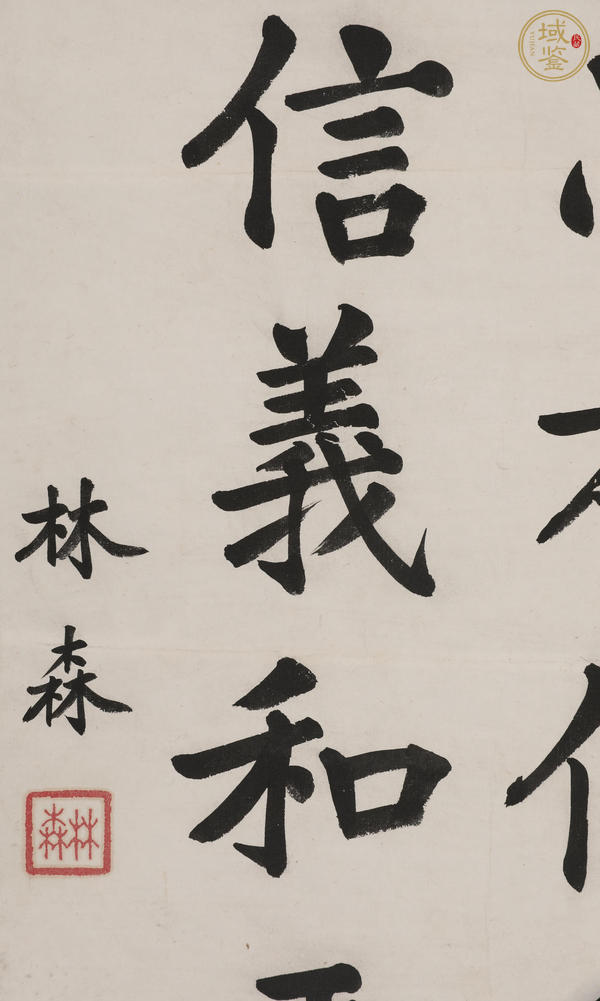 信義和
林森
林森
域鉴
YUJIAN